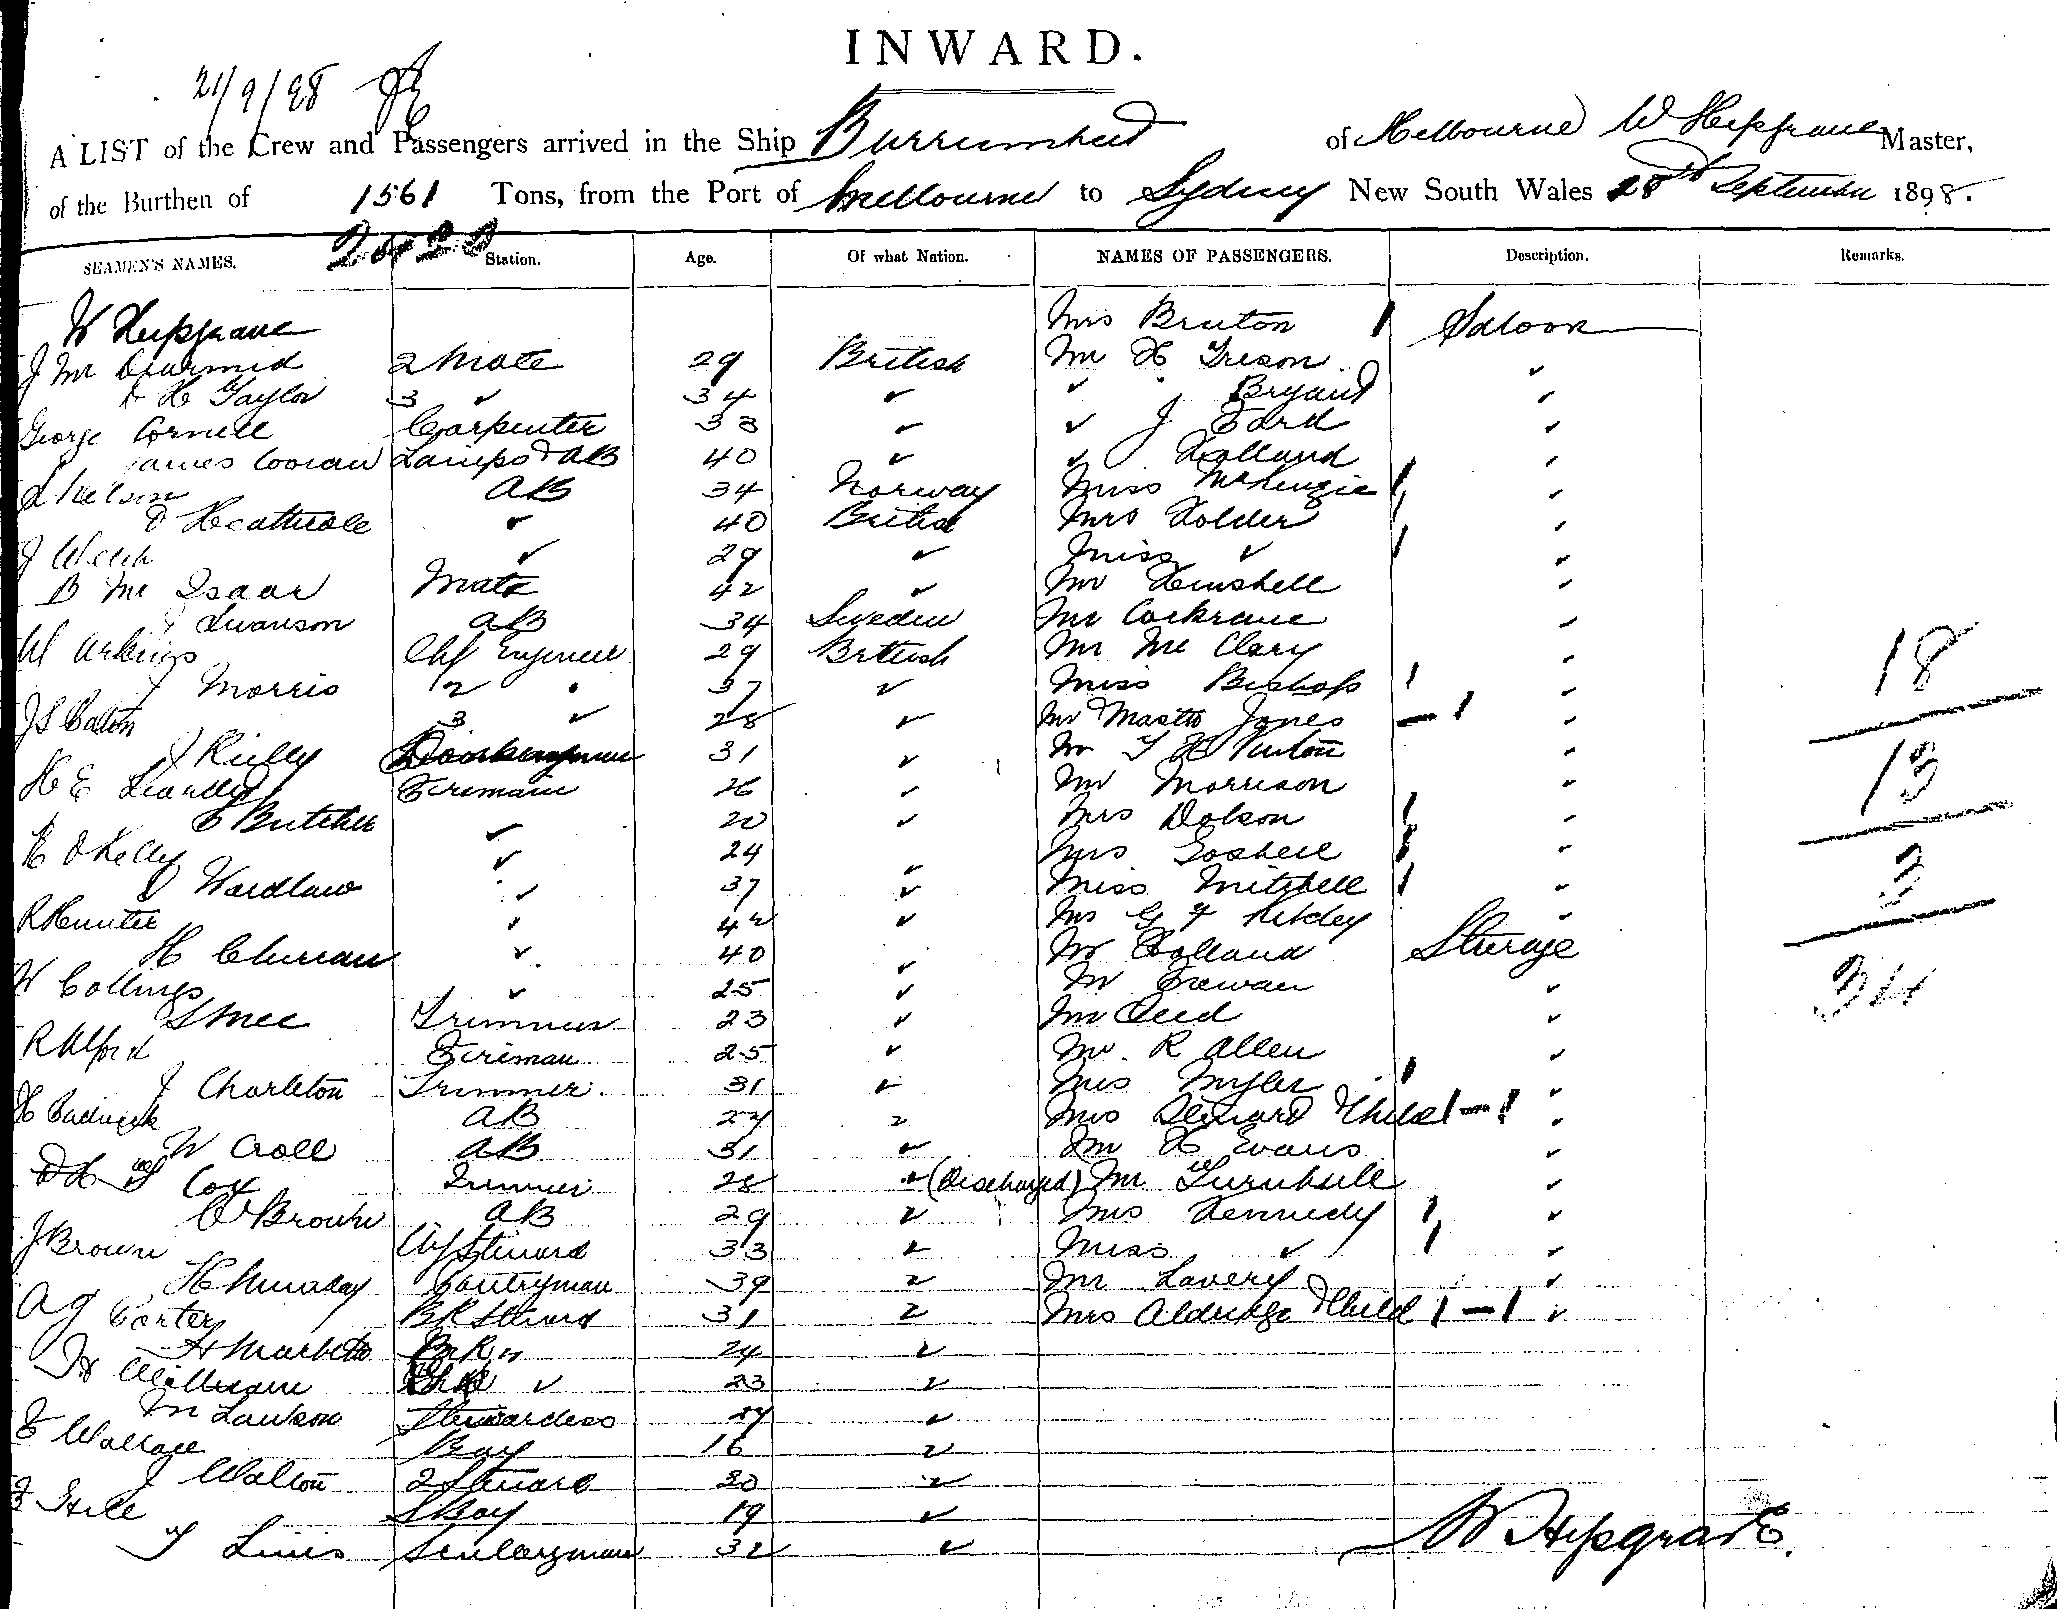 INWARD.
21/9/98
A LIST of the Crew and Passengers arrived in the Ship Burrumbeet of Melbourne W Hepgrave Master,
of the Burthen of 1561 Tons, from the Port of Melbourne to Sydney New South Wales 20th September 1898.
SEAMEN'S NAMES. Station. Age. Of what Nation. NAMES OF PASSENGERS. Description. Remarks.
W Hepgrave Mrs Bruton 1 Saloon
J Mc Dearmid 2 Mate 29 British Mr H Ireson ✓
H Taylor 3 ✓ 34 ✓ ✓ Bryant ✓
George Cornell Carpenter 33 ✓ ✓ J Eard ✓
James Cowan Lamps & AB 40 ✓ ✓ Holland ✓
Nelson AB 34 Norway Miss McKenzie 1 ✓
D Heathcole ✓ 40 British Mrs Holder 1 ✓
J Welch ✓ 29 ✓ Miss ✓ 1 ✓
B Mc Isaac Mate 42 ✓ Mr Henshell ✓
Swanson AB 34 Sweden Mr Cockrane ✓
W Arkins Chf Engineer 29 British Mr Mc Clary ✓
J Morris 2 " 37 ✓ Miss Bishop 1 ✓
J S Eaton 3 ✓ 28 ✓ Mr & Master Jones – 1 ✓
J Rielly Donkeyman 31 ✓ Mr T H ✓
H E Fireman 26 ✓ Mr Morrison ✓ 18
Butcher ✓ 20 ✓ Mrs Dobson 1 ✓ 13
H O Kelly ✓ 24 ✓ Mrs Gosbell 1 ✓ 3
Wardlaw ✓ 37 ✓ Miss Mitchell 1 ✓ 34
R Hunter ✓ 42 ✓ Mr G F ✓
H ✓ 40 ✓ Mr Holland Steerage
W Collings ✓ 25 ✓ Mr Cowan ✓
Smee Trimmer 23 ✓ Mr Reed ✓
R Alford Fireman 25 ✓ Mr R Allen ✓
J Charleton Trimmer 31 ✓ Mrs Myler 1 ✓
H AB 27 ✓ Mrs & Child 1 – 1 ✓
W Croll AB 31 ✓ Mr H Evans ✓
Cox Trimmer 28 ✓ (Discharged) Mr Turnbull ✓
C Brown AB 29 ✓ Mrs Kennedy 1 ✓
J Brown Chf Steward 33 ✓ Miss ✓ 1 ✓
H Munday Pantryman 39 ✓ Mr Lavery ✓
A G Porter BR Steward 31 ✓ Mrs Aldridge & Child 1 – 1 ✓
BR " 24 ✓
✓ 23 ✓
M Lawson Stewardess 47 ✓
Wallace Boy 16 ✓
J Walton 2 Steward 30 ✓
Hill S Boy 19 ✓
Scullaryman 32 ✓
W Hepgrave